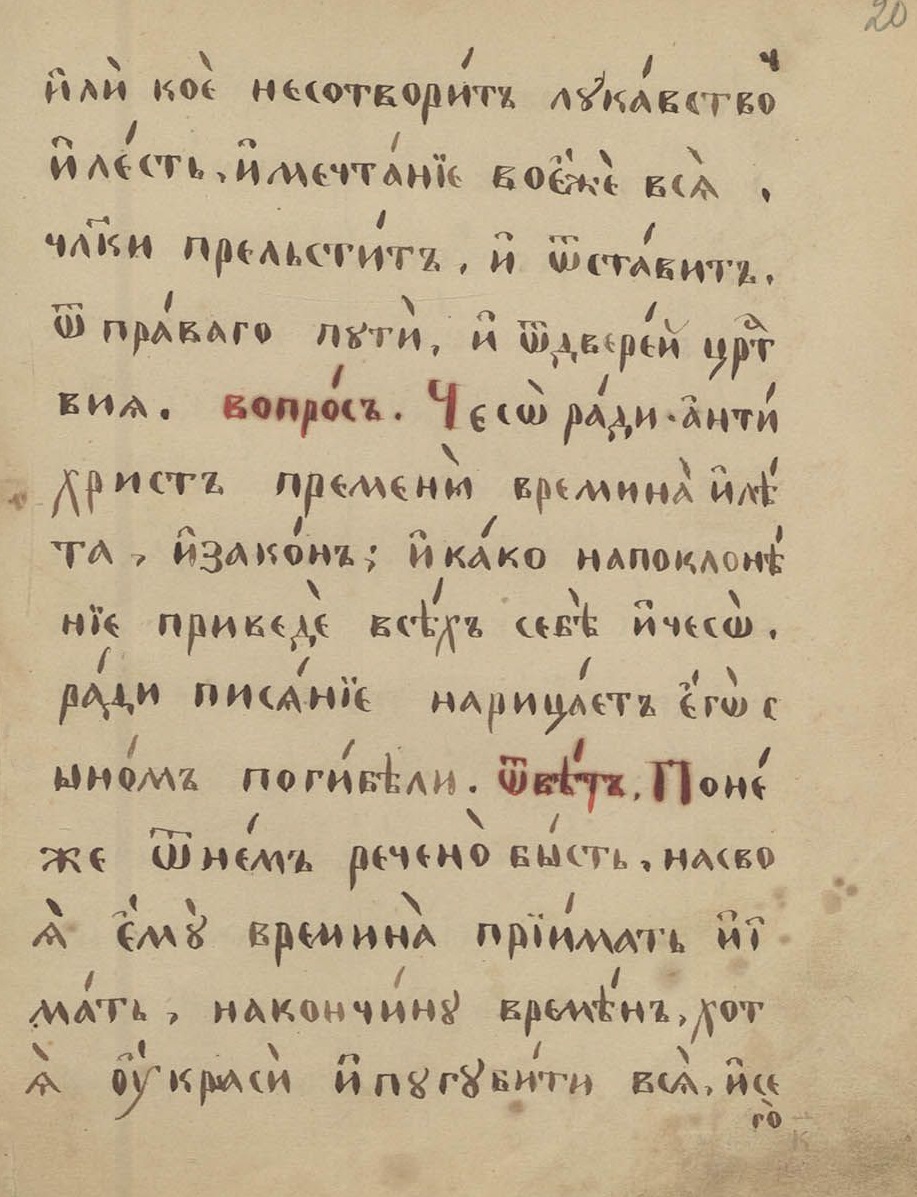 20
и҆лѝ коѐ несотвори́тъ лꙋка́вство
ч
и҆ле́сть, и҆мечта́нїе воє҆́жѐ всѧ̀ ,
чл҃ки прельсти́тъ, и҆ ѿста́витъ,
ѿ пра́ваго пꙋтѝ, и҆ ѿдвере́й црт҇
вия. вопро́съ. Чесѡ̀ ра́ди а҆нти́
христъ пременѝ времина̀ и҆лѣ́
та, и҆зако́нъ; и҆ ка́ко напоклонѣ́
нїе приведѐ всѣ́хъ себѣ̀ и҆чесѡ̀.
ра́ди писа́нїе нарица́етъ є҆гѡ̀ с
ыно́мъ поги́бѣли. ѿвѣ́тъ. Поне́
же ѿне́мъ речено̀ бы́сть, насво
ѧ̀ є҆мꙋ̀ времина̀ прїи́мать и҆і҆
ма́ть, накончи́нꙋ времѣ́нъ, хот
ѧ̀ ᲂу҆красѝ и҆пꙋгꙋби́ти всѧ̀, и҆се
го̀
к